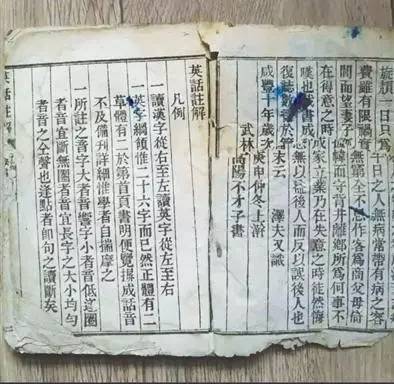 旋 一日只爲 日之人無病常帶有病之容
費雖有限禍實無窮全不思作客爲商父母倚
閭而望妻子 而守背井離鄉所爲何事不
在得意之時成家立業乃在失意之時徒然悔
嘆也 書成 無以 後人而反以誤後人也
復誌數 於 末云 澤夫又識
咸豐十年歲次庚申仲冬上澣
武林高陽不才子書
英話註解
凡例
一讀漢字從右至左讀英字從左至右
一英字綱領惟二十六字而已然正體有二
草體有二於第首頁書明便覽揖成話音
不及備刊詳細惟學者自揣摩之
一所註之音字大者音響字小者音低逐圈
者音宜斷無圈者音宜長字之大小均勻
者音之全聲也逢點者卽句之讀斷矣
英話註解